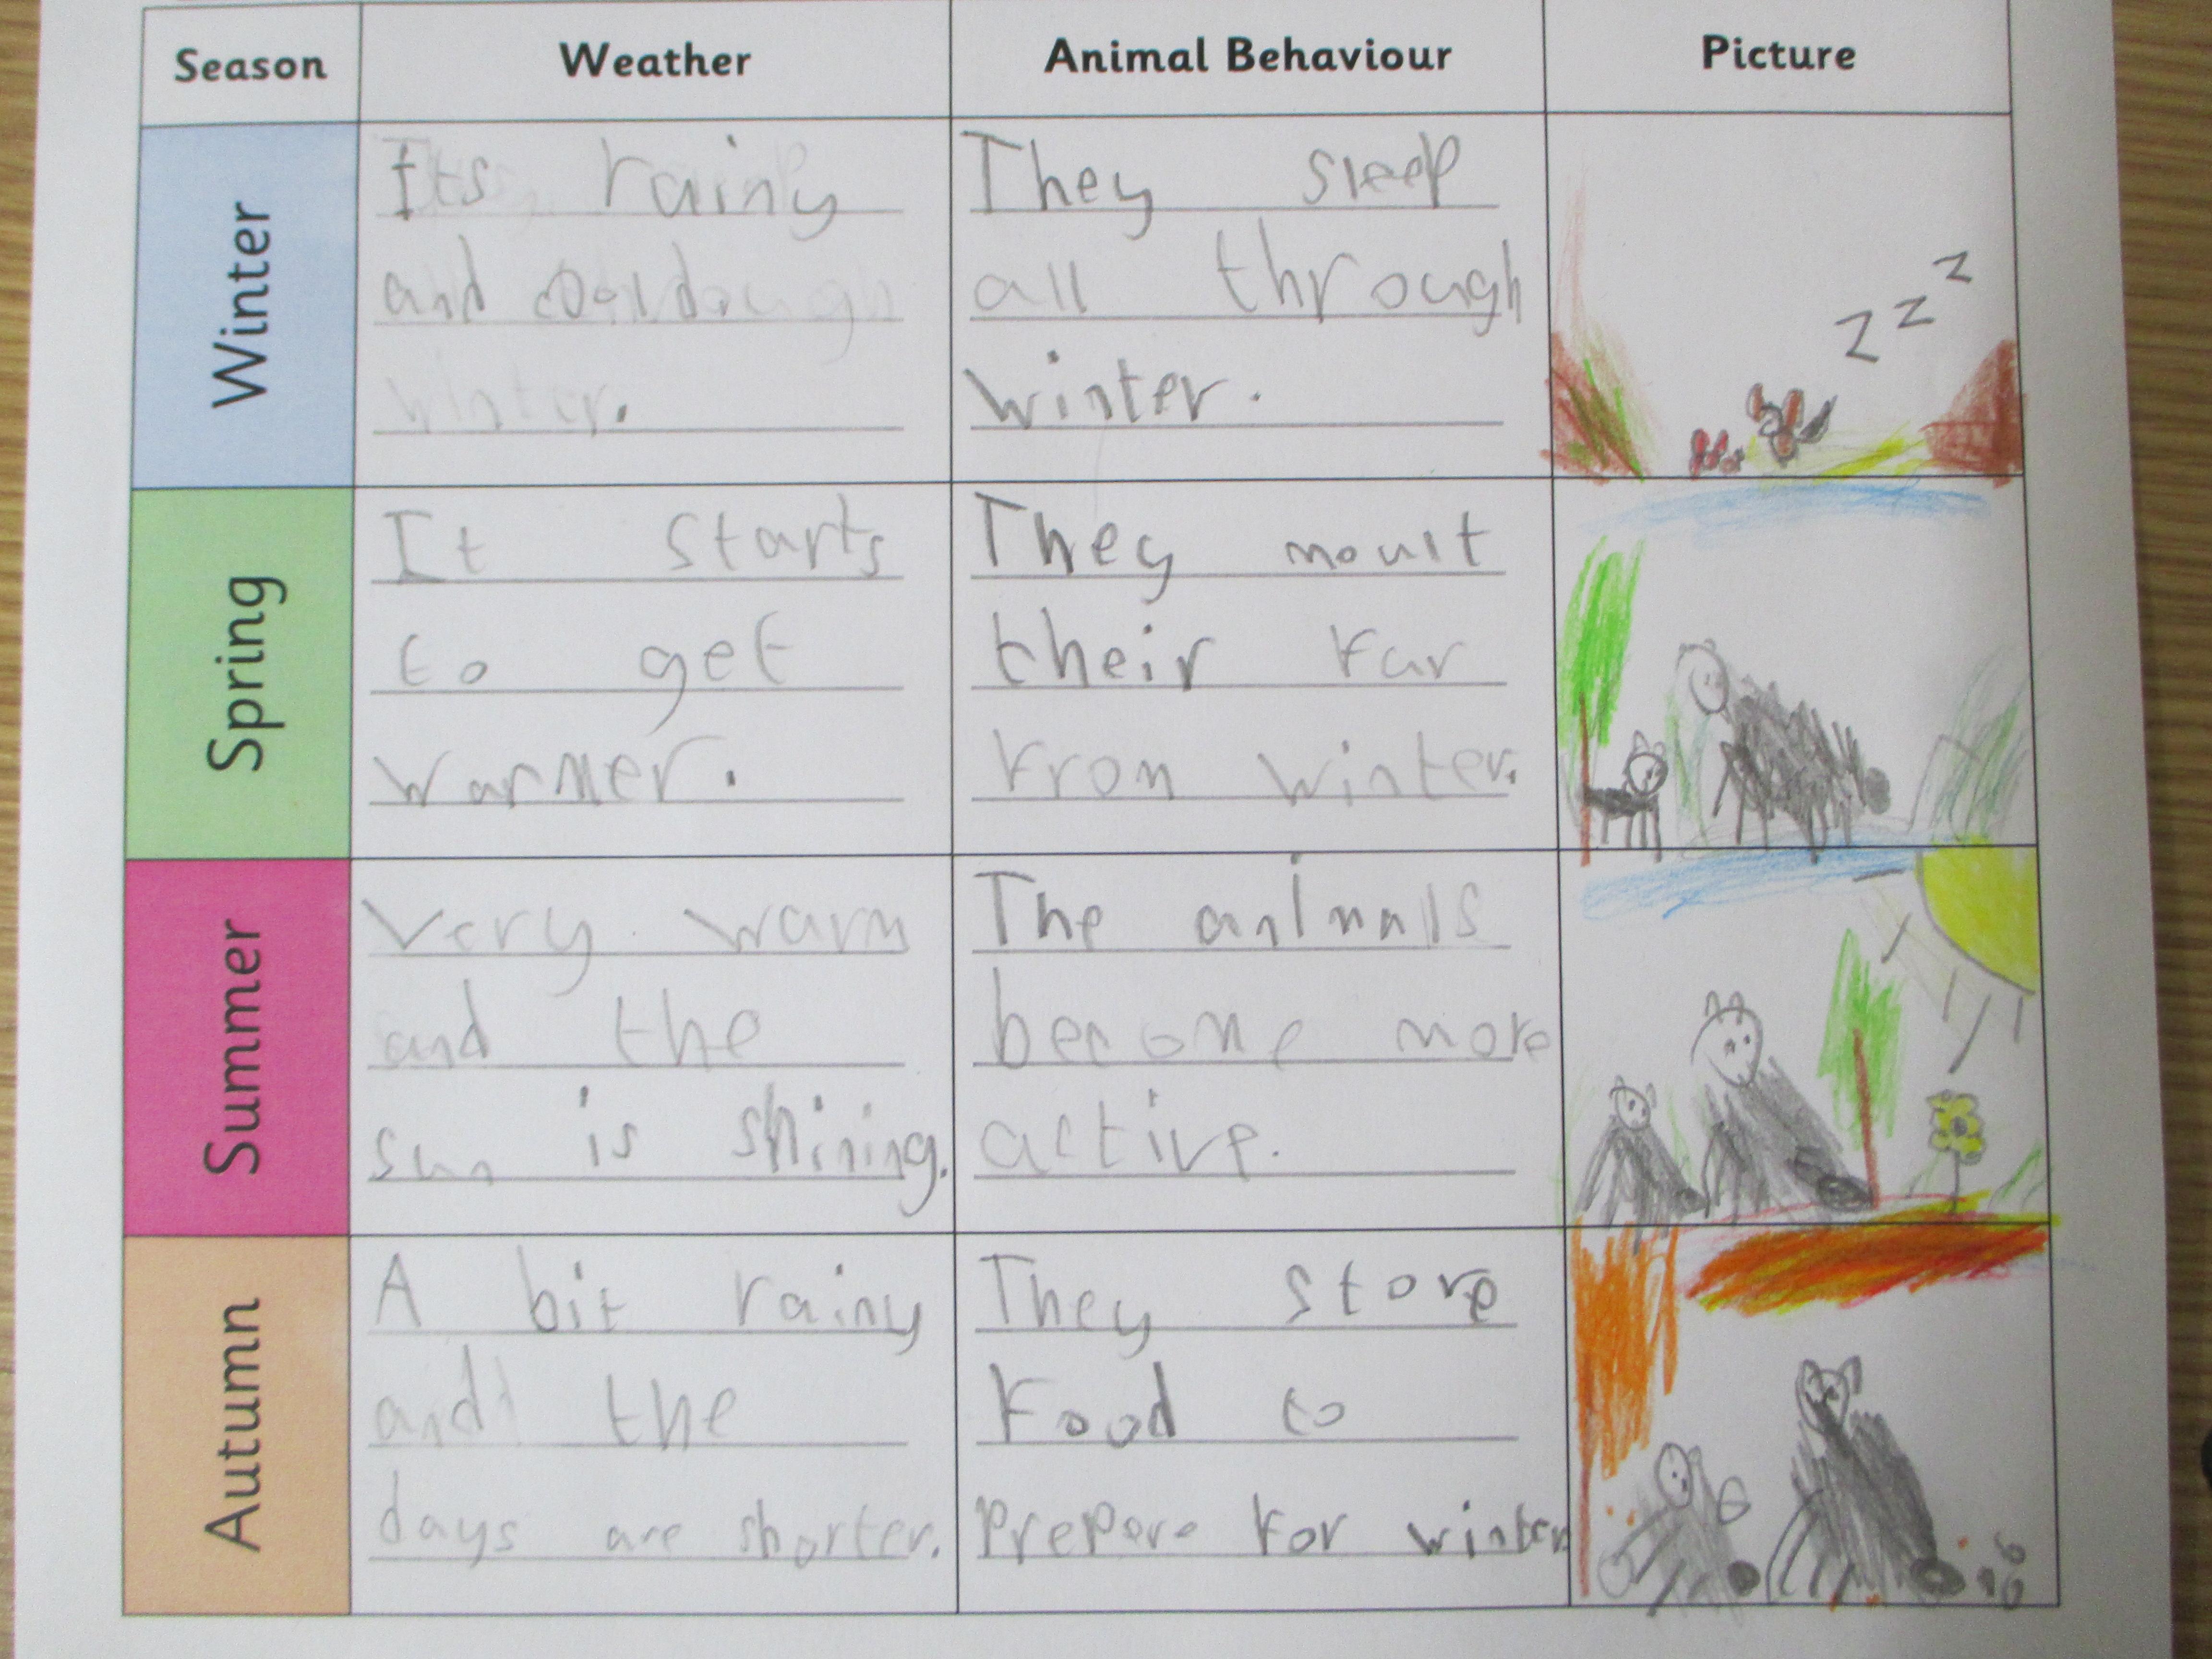 Season Weather Animal Behaviour Picture
Winter
Its rainy
and cold
.
They sleep
all through
winter.
z z z
Spring
It starts
to get
warmer.
They moult
their fur
from winter.
Summer
Very warm
and the
sun is shining.
The animals
become more
active.
Autumn
A bit rainy
and the
days are shorter.
They store
Food to
prepare for winter